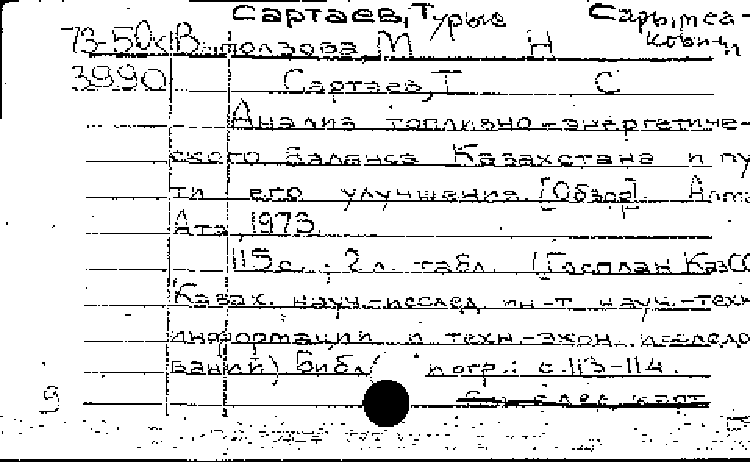 Сартаев, Турыс Сарымса-
кович
73-50к Выползова М Н
3990 Сартаев, Т С
Анализ топливно-энергетиче-
ского баланса Казахстана и пу-
ти его улучшения. [Обзор]. Алма-
Ата, 1973.
115 с.; 2 л. табл. (Госплан КазСС
Казах. науч.-исслед. ин-т науч.-техн
информации и техн.-экон. исследо
ваний) Библиогр.: с.113-114.
9 См. след карт